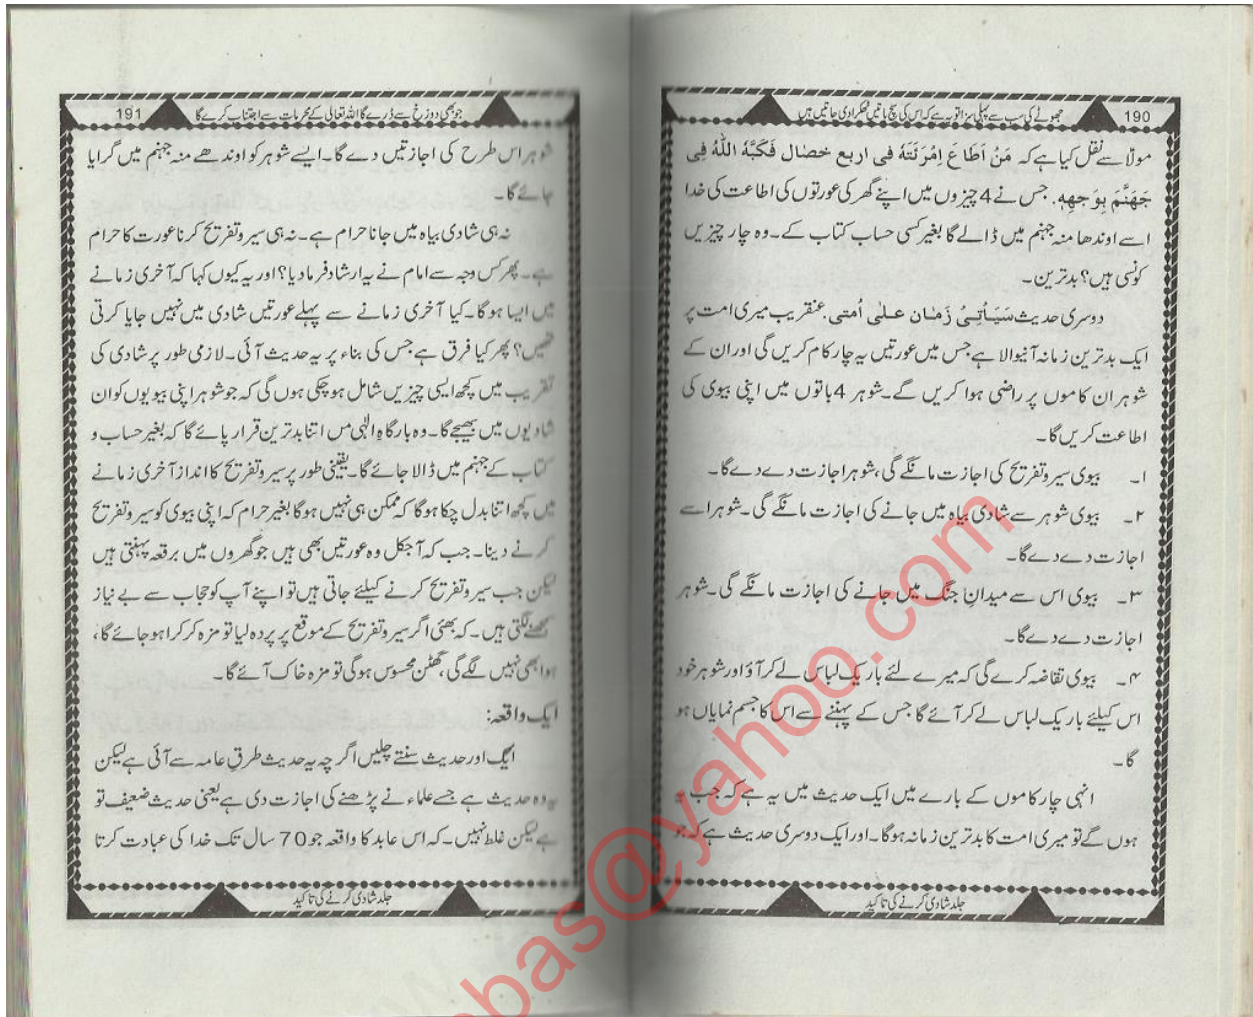 190
جھوٹے کی سب سے پہلی سزا تو یہ ہے کہ اس کی سچ باتیں ٹھکرا دی جاتیں ہیں
مولاؑ سے نقل کیا ہے کہ مَنْ اَطَاعَ اِمْرَئَتَهٗ فی اربع خصٰال فَکَبَّهٗ اللّٰهُ فِی
جَهَنَّمَ بِوَجهِهٖ. جس نے 4 چیزوں میں اپنے گھر کی عورتوں کی اطاعت کی خدا
اسے اوندھا منہ جہنم میں ڈالے گا بغیر کسی حساب کتاب کے۔ وہ چار چیزیں
کونسی ہیں؟ بدترین۔
دوسری حدیث سَیَأتِیْ زَمٰان علٰی اُمتی. عنقریب میری امت پر
ایک بدترین زمانہ آنیوالا ہے جس میں عورتیں یہ چار کام کریں گی اور ان کے
شوہر ان کاموں پر راضی ہوا کریں گے۔ شوہر 4 باتوں میں اپنی بیوی کی
اطاعت کریں گا۔
۱۔ بیوی سیر و تفریح کی اجازت مانگے گی، شوہر اجازت دے دے گا۔
۲۔ بیوی شوہر سے شادی بیاہ میں جانے کی اجازت مانگے گی۔ شوہر اسے
اجازت دے دے گا۔
۳۔ بیوی اس سے میدانِ جنگ میں جانے کی اجازت مانگے گی۔ شوہر
اجازت دے دے گا۔
۴۔ بیوی تقاضہ کرے گی کہ میرے لئے باریک لباس لے کر آؤ اور شوہر خود
اس کیلئے باریک لباس لے کر آئے گا جس کے پہننے سے اس کا جسم نمایاں ہو
گا۔
انہی چار کاموں کے بارے میں ایک حدیث میں یہ ہے کہ جب یہ
ہوں گے تو میری امت کا بدترین زمانہ ہوگا۔ اور ایک دوسری حدیث ہے کہ جو
جلد شادی کرنے کی تاکید
جو بھی دوزخ سے ڈرے گا اللہ تعالی کے محرمات سے اجتناب کرے گا
191
شوہر اس طرح کی اجازتیں دے گا۔ ایسے شوہر کو اوندھے منہ جہنم میں گرایا
جائے گا۔
نہ ہی شادی بیاہ میں جانا حرام ہے۔ نہ ہی سیر و تفریح کرنا عورت کا حرام
ہے۔ پھر کس وجہ سے امام نے یہ ارشاد فرمادیا؟ اور یہ کیوں کہا کہ آخری زمانے
میں ایسا ہوگا۔ کیا آخری زمانے سے پہلے عورتیں شادی میں نہیں جایا کرتی
تھیں؟ پھر کیا فرق ہے جس کی بناء پر یہ حدیث آئی۔ لازمی طور پر شادی کی
تقریب میں کچھ ایسی چیزیں شامل ہوچکی ہوں گی کہ جو شوہر اپنی بیویوں کو ان
شادیوں میں بھیجے گا۔ وہ بارگاہِ الٰہی مس اتنا بدترین قرار پائے گا کہ بغیر حساب و
کتاب کے جہنم میں ڈالا جائے گا۔ یقینی طور پر سیر و تفریح کا انداز آخری زمانے
میں کچھ اتنا بدل چکا ہوگا کہ ممکن ہی نہیں ہوگا بغیر حرام کہ اپنی بیوی کو سیر و تفریح
کرنے دینا۔ جب کہ آجکل وہ عورتیں بھی ہیں جو گھروں میں برقعہ پہنتی ہیں
لیکن جب سیر و تفریح کرنے کیلئے جاتی ہیں تو اپنے آپ کو حجاب سے بے نیاز
سمجھنے لگتی ہیں۔ کہ بھئی اگر سیر و تفریح کے موقع پر پردہ لیا تو مزہ کرکرا ہوجائے گا،
ہوا بھی نہیں لگے گی، گھٹن محسوس ہوگی تو مزہ خاک آئے گا۔
ایک واقعہ:
ایک اور حدیث سنتے چلیں اگرچہ یہ حدیث طرقِ عامہ سے آئی ہے لیکن
یہ وہ حدیث ہے جسے علماء نے پڑھنے کی اجازت دی ہے یعنی حدیث ضعیف تو
ہے لیکن غلط نہیں۔ کہ اس عابد کا واقعہ جو 70 سال تک خدا کی عبادت کرتا
جلد شادی کرنے کی تاکید
bas@yahoo.com